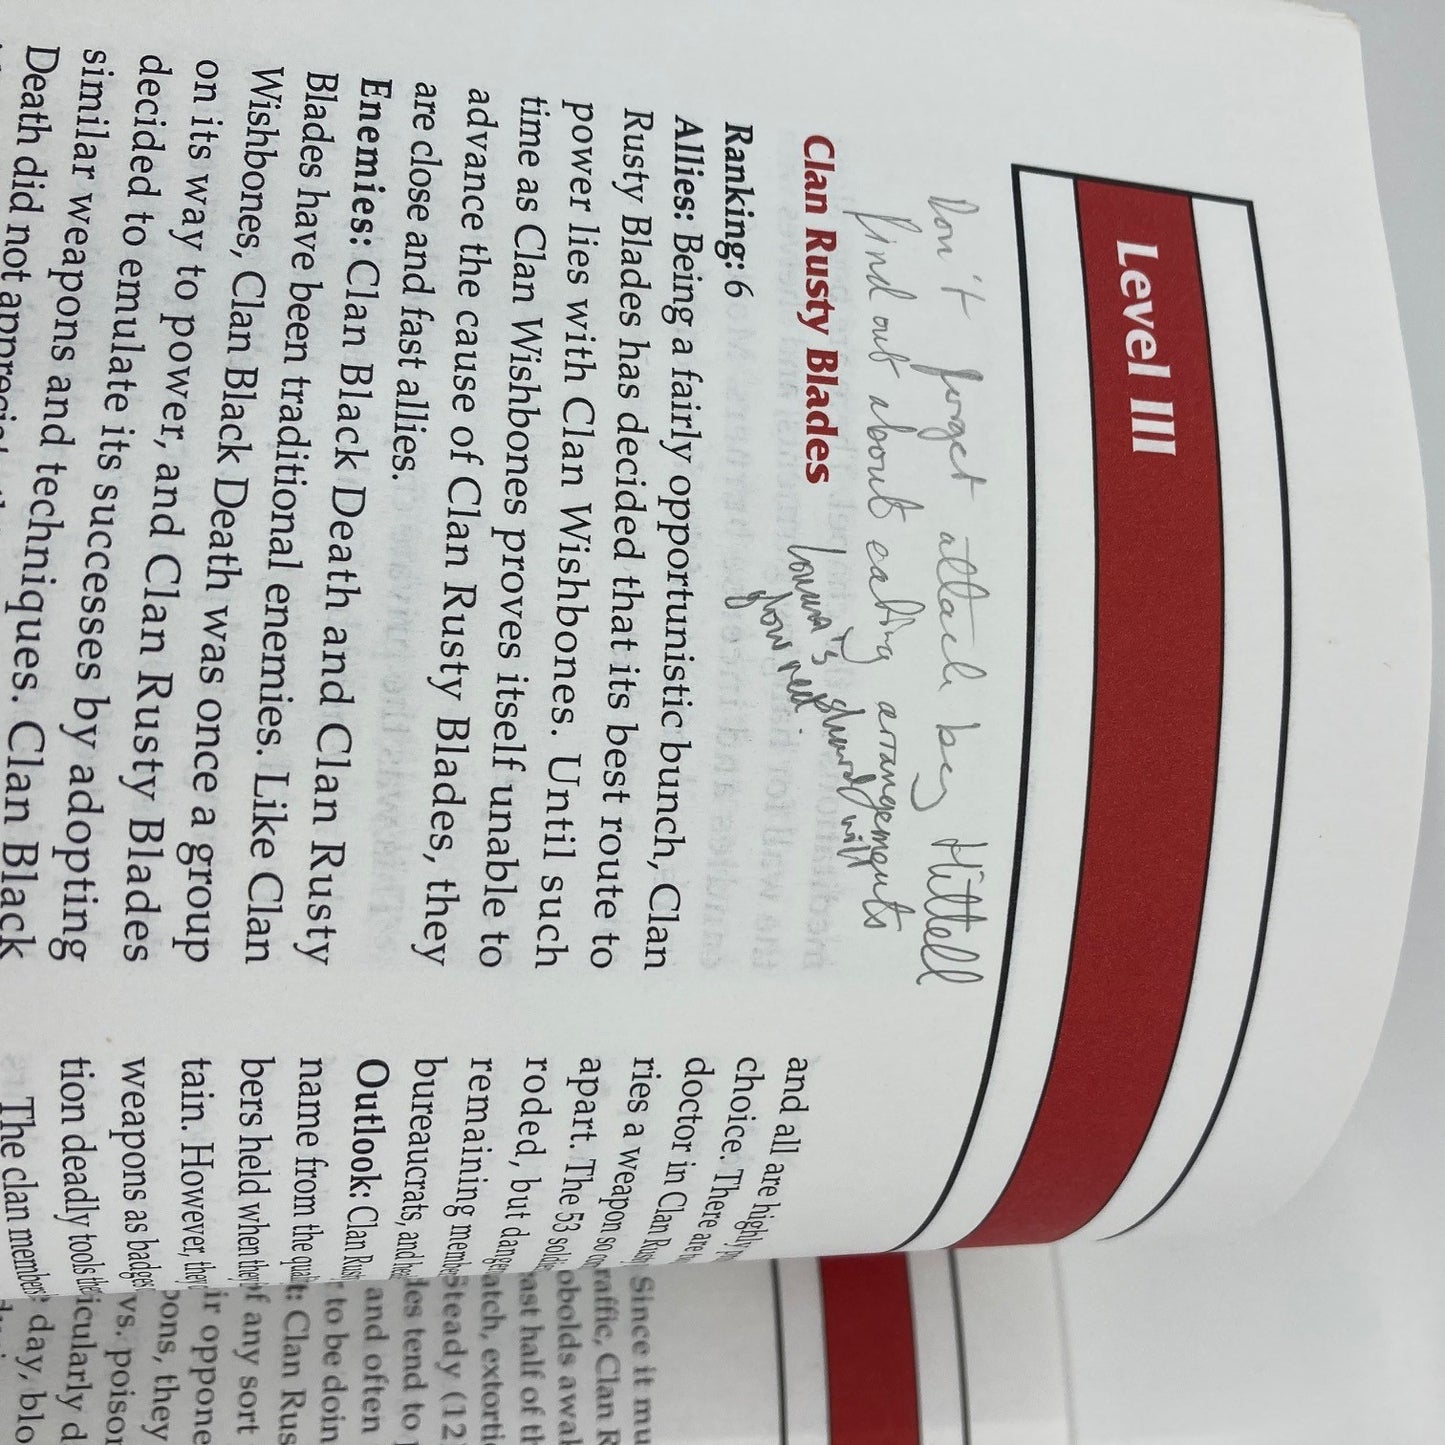 Level III
Don't forget attack by Hittell
find out about eating arrangements
Clan Rusty Blades
should will
grow next
Ranking: 6
Allies: Being a fairly opportunistic bunch, Clan
Rusty Blades has decided that its best route to
power lies with Clan Wishbones. Until such
time as Clan Wishbones proves itself unable to
advance the cause of Clan Rusty Blades, they
are close and fast allies.
Enemies: Clan Black Death and Clan Rusty
Blades have been traditional enemies. Like Clan
Wishbones, Clan Black Death was once a group
on its way to power, and Clan Rusty Blades
decided to emulate its successes by adopting
similar weapons and techniques. Clan Black
Death did not
and all are highly
choice. There are
doctor in Clan
ries a weapon so
apart. The 53
roded, but
remaining
bureaucrats, and
Outlook: Clan
name from the
bers held when
tain. However,
weapons as badges
tion deadly tools
The clan members
Since it mu
raffic, Clan R
obolds awa
ast half of th
atch, extorti
steady (12
les tend to
and often
to be doin
Clan Rus
f any sort
ir oppone
they
vs. poison
icularly d
day, blo